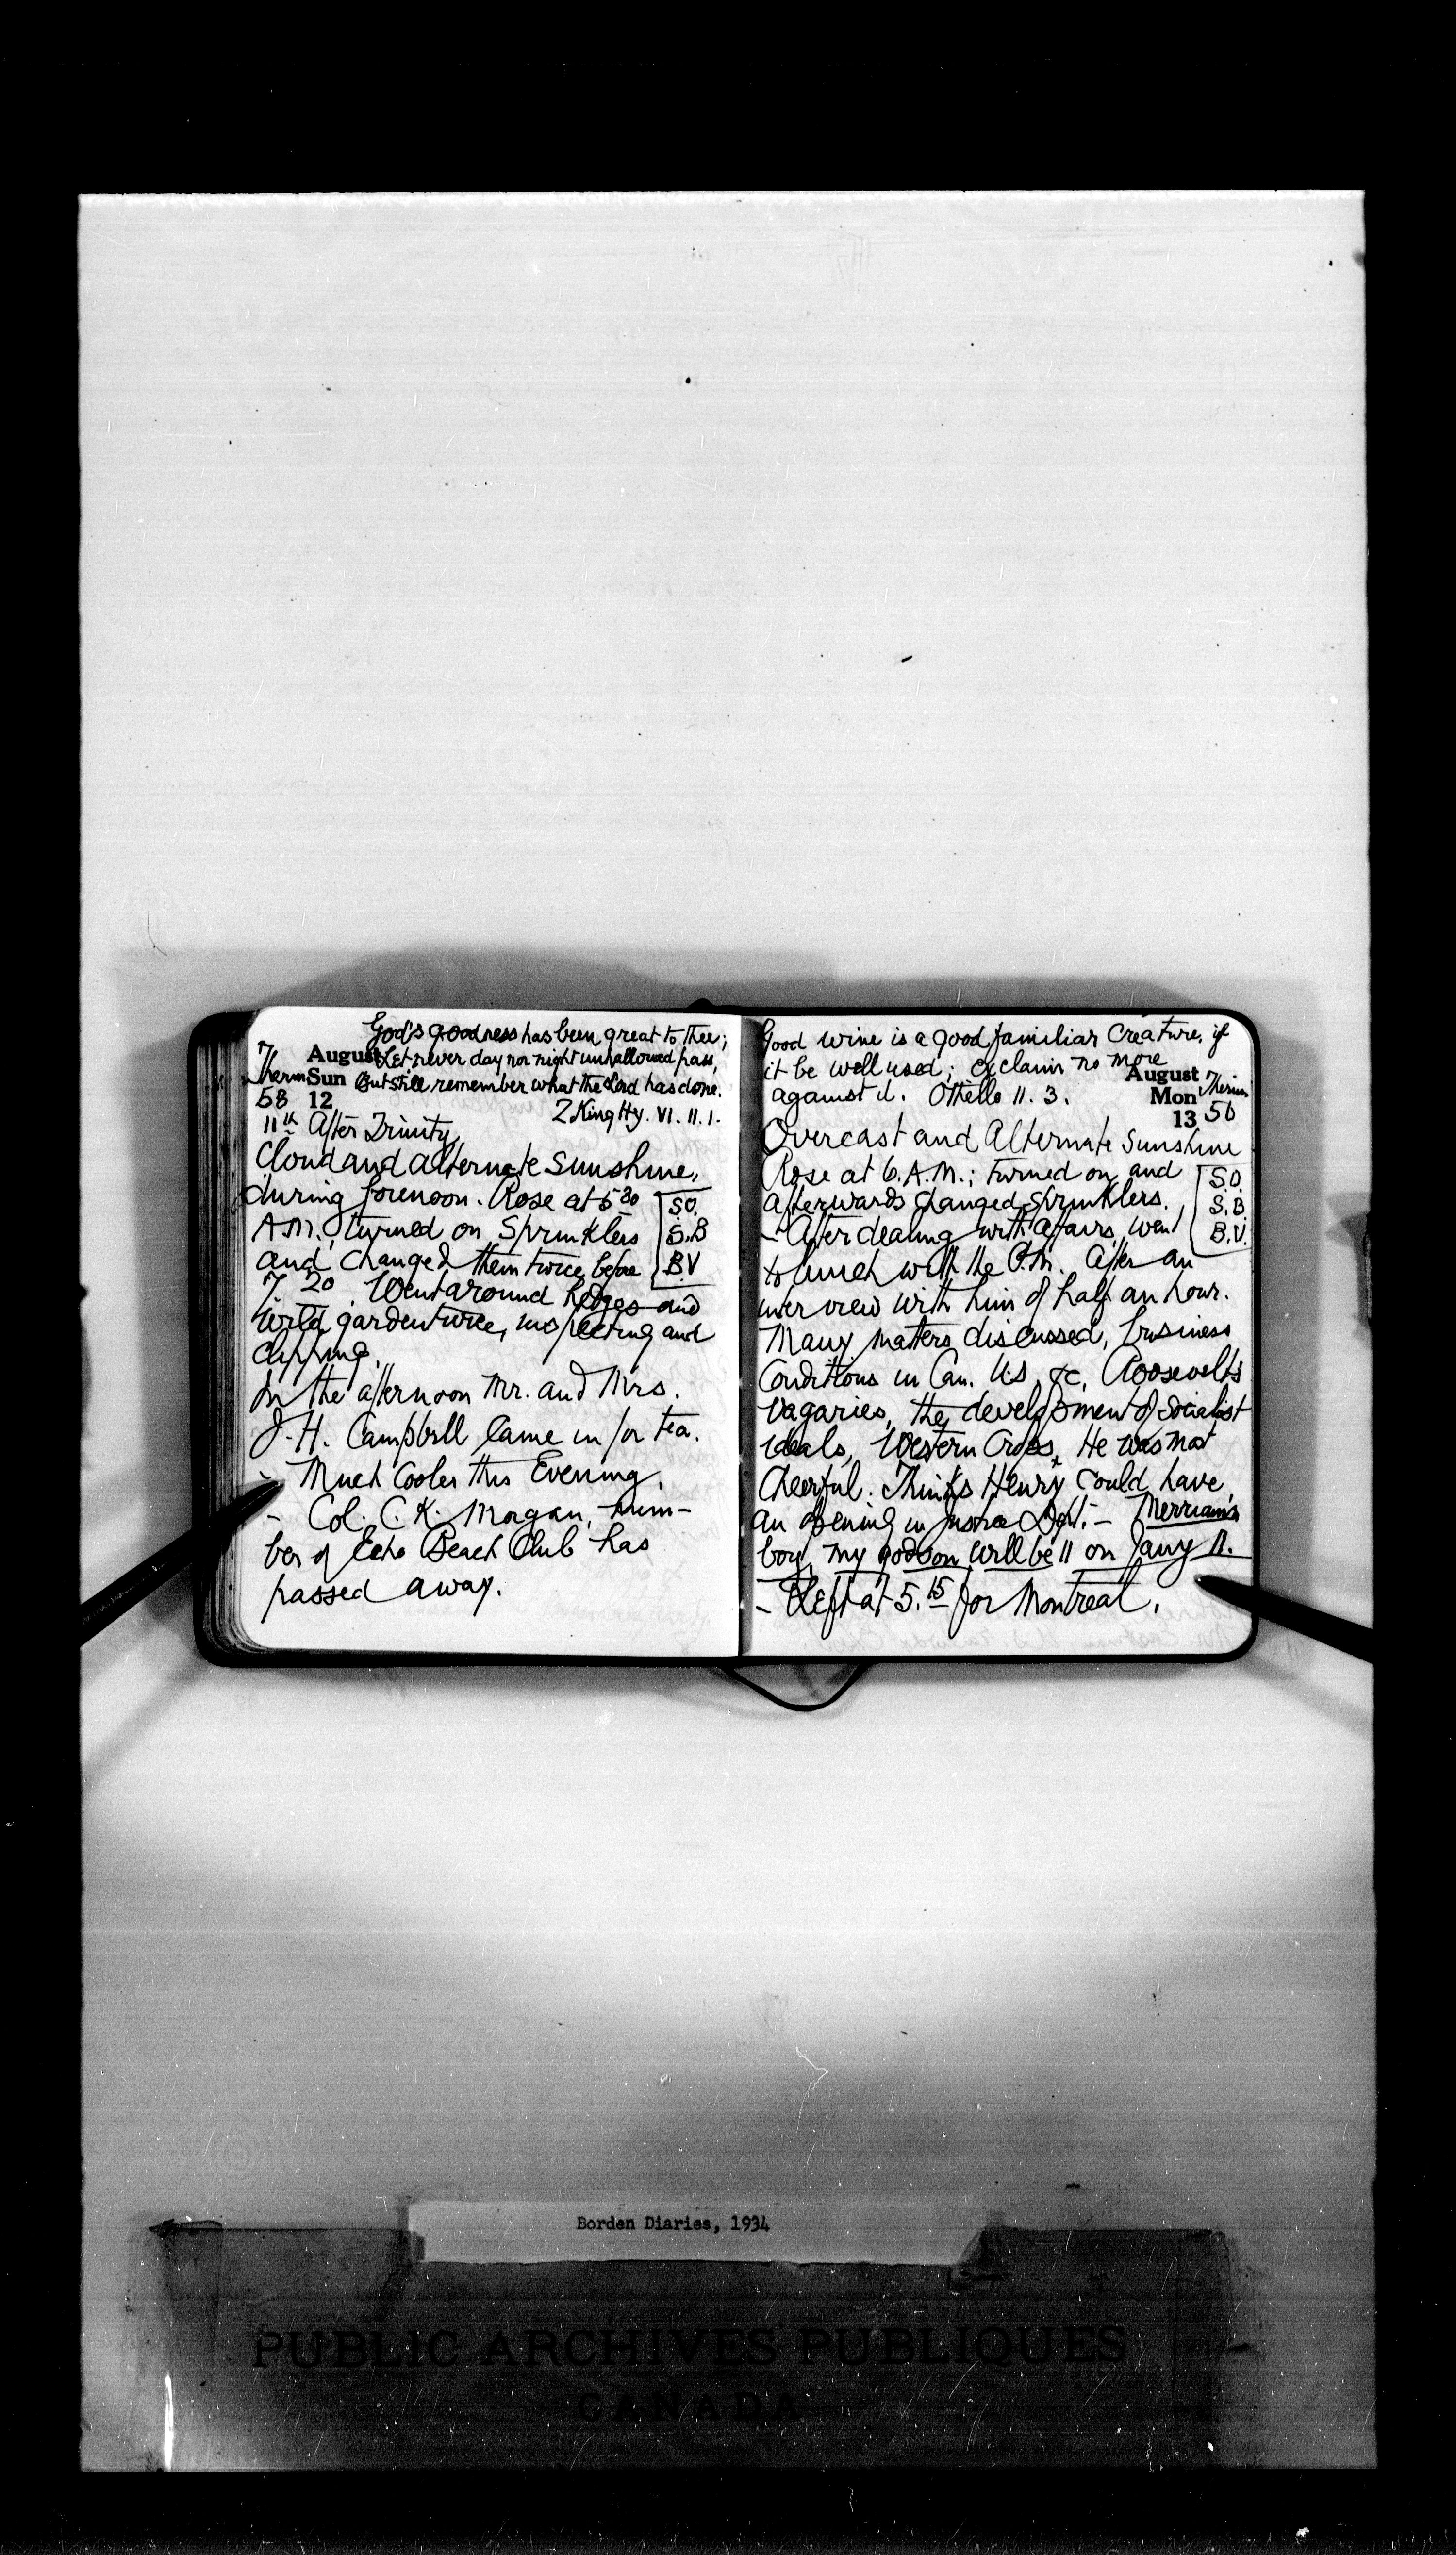 God's goodness has been great to thee;
Let never day nor night unhallowed pass,
But still remember what the Lord has done.
2 King Hy. VI. II. 1.
August
Sun
12
Therm
58
11th After Trinity
Cloud and alternate sunshine,
during forenoon. Rose at 5 30
A.M. turned on Sprinklers
and changed them twice before
7.20. Went around hedges and
wild garden twice, inspecting and
clipping.
S.O.
S.B
B.V
In the afternoon Mr. and Mrs.
J. H. Campbell came in for tea.
- Much Cooler this Evening.
- Col. C. K. Morgan, mem-
ber of Echo Beach Club has
passed away.
Good wine is a good familiar Creature, if
it be well used; exclaim no more
against it. Othello II. 3.
August
Mon
13
Therm
56
Overcast and Alternate Sunshine
Rose at 6. A.M.; turned on and
afterwards changed Sprinklers.
S.O.
S.B.
B.V.
- After dealing with affairs, went
to lunch with the P.M. After an
interview with him of half an hour.
Many matters discussed, business
Conditions in Can. U.S. &c, Roosevelt's
vagaries, the development of socialist
ideals, Western Crops, He was not
Cheerful. Thinks Henry could have
an opening in Justice Dept. - Merriam's
boy, my godson will be 11 on Jany 11.
- Left at 5.15 for Montreal.
Borden Diaries, 1934
PUBLIC ARCHIVES PUBLIQUES
CANADA